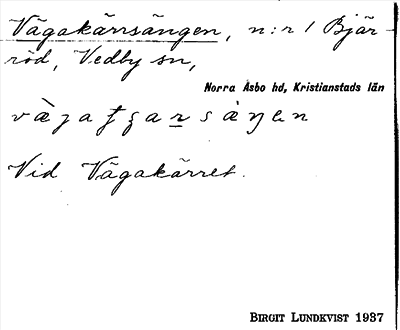 Vägakärrsängen, n:r 1 Bjär-
röd, Vedby sn,
Norra Åsbo hd, Kristianstads län
Vid Vägakärret.
BIRGIT LUNDKVIST 1937